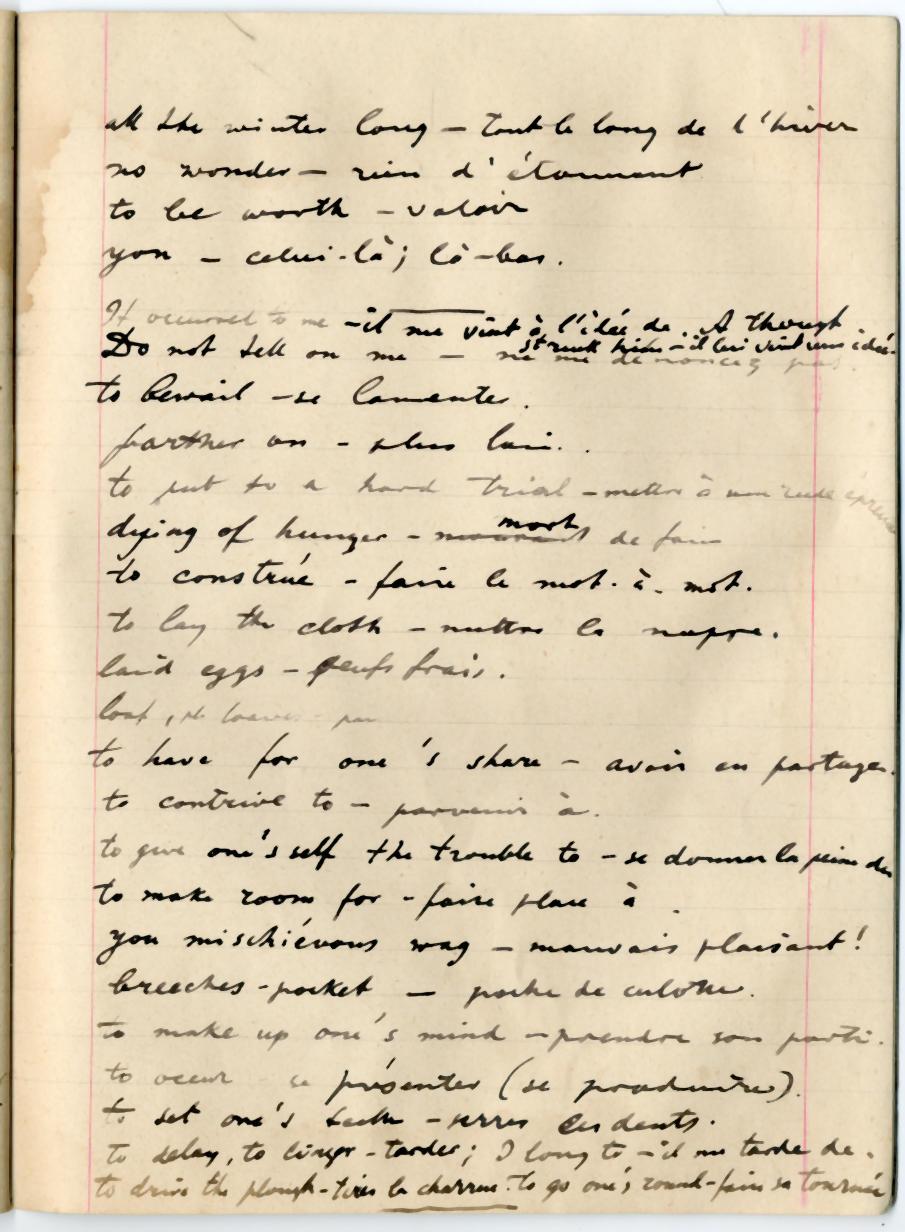 all the winter long – tout le long de l'hiver
no wonder – rien d'étonnant
to be worth – valoir
yon – celui-là; là-bas.
It occurred to me – il me vint à l'idée de. A though
struck him – il lui vint une idée.
Do not tell on me – ne me dénoncez pas.
to bewail – se lamenter.
farther on – plus loin.
to put to a hard trial – mettre à une rude épreuve
dying of hunger – mourant mort de faim
to construe – faire le mot-à-mot.
to lay the cloth – mettre la nappe.
laid eggs – oeufs frais.
loaf, pl. loaves – pain
to have for one's share – avoir en partage.
to contrive to – parvenir à.
to give one's self the trouble to – se donner la peine de
to make room for – faire place à
you mischiévous wag – mauvais plaisant!
breeches-pocket – poche de culotte.
to make up one's mind – prendre son parti.
to occur – se présenter (se produire).
to set one's teeth – serrer les dents.
to delay, to linger – tarder; I long to – il me tarde de.
to drive the plough – tirer la charrue. to go one's round – faire sa tournée